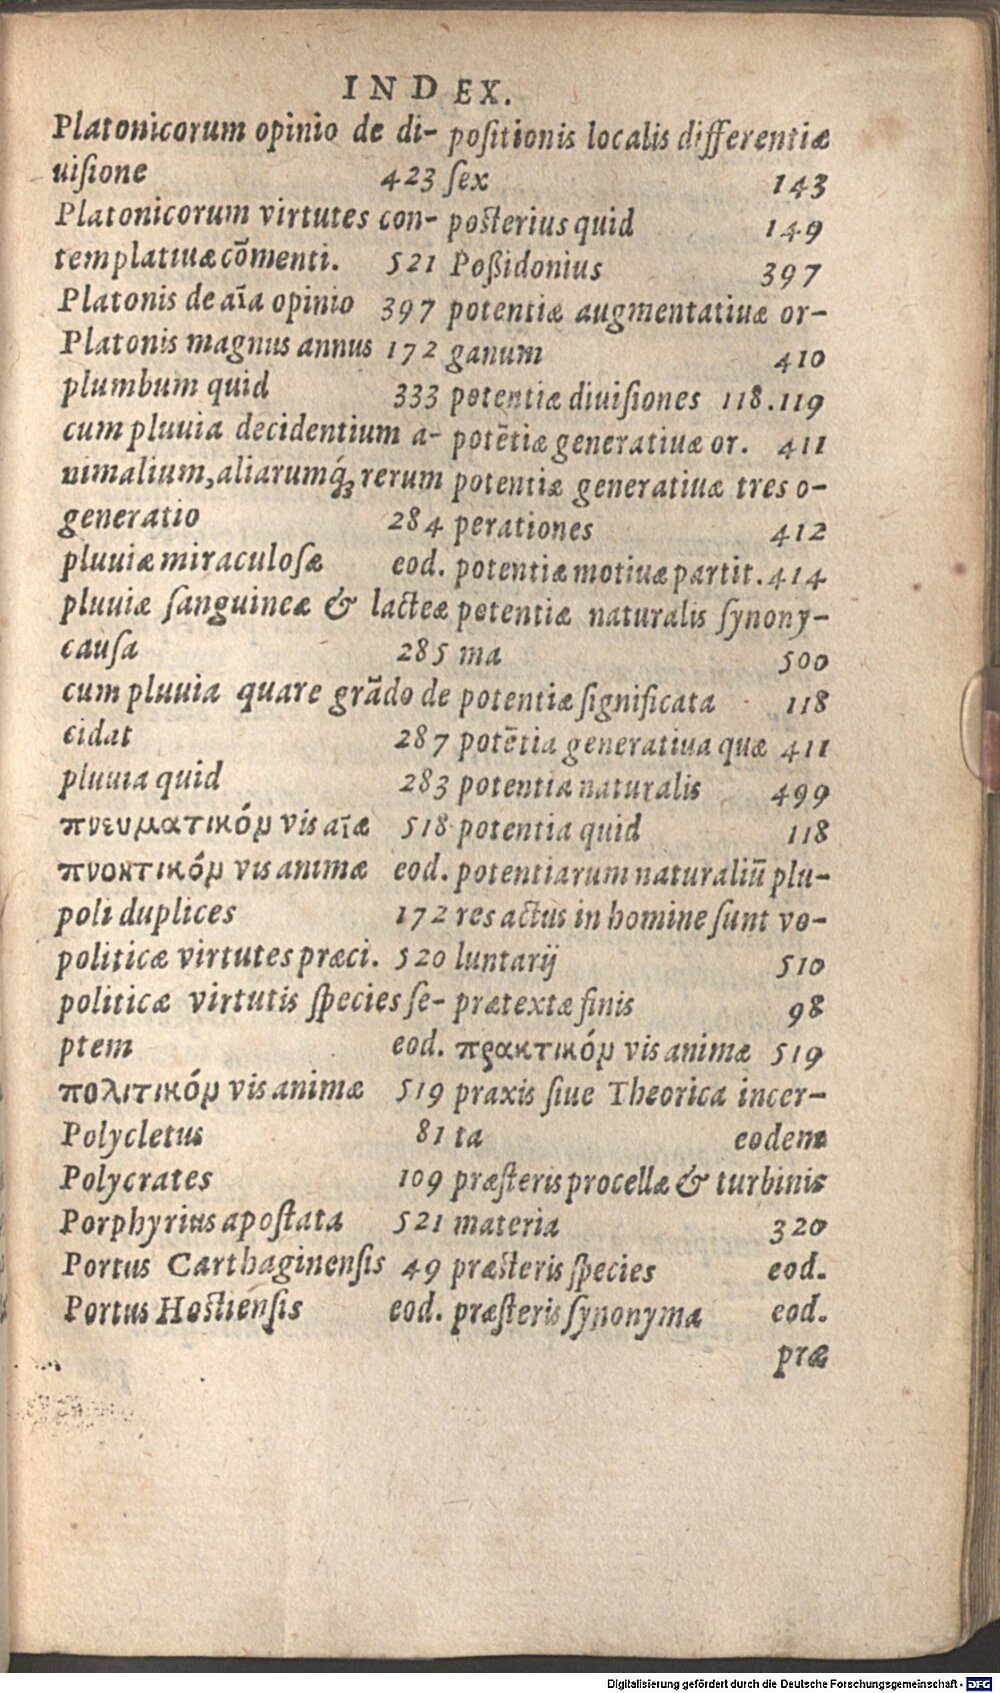 INDEX.
Platonicorum opinio de di-
uiſione 423
Platonicorum virtutes con-
templatiuæ cōmenti. 521
Platonis de aīa opinio 397
Platonis magnus annus 172
plumbum quid 333
cum pluuia decidentium a-
nimalium, aliarumq́ꝫ rerum
generatio 284
pluuiæ miraculoſæ eod.
pluuiæ ſanguineæ & lacteæ
cauſa 285
cum pluuia quare grādo de
cidat 287
pluuia quid 283
πνευματικόν vis aīæ 518
πνοκτικόν vis animæ eod.
poli duplices 172
politicæ virtutes præci. 520
politicæ virtutis ſpecies ſe-
ptem eod.
πολιτικόν vis animæ 519
Polycletus 81
Polycrates 109
Porphyrius apoſtata 521
Portus Carthaginenſis 49
Portus Hoſtienſis eod.
poſitionis localis differentiæ
ſex 143
poſterius quid 149
Poßidonius 397
potentiæ augmentatiuæ or-
ganum 410
potentiæ diuiſiones 118.119
potētiæ generatiuæ or. 411
potentiæ generatiuæ tres o-
perationes 412
potentiæ motiuæ partit. 414
potentiæ naturalis ſynony-
ma 500
potentiæ ſignificata 118
potētia generatiua quæ 411
potentia naturalis 499
potentia quid 118
potentiarum naturaliū plu-
res actus in homine ſunt vo-
luntarij 510
prætextæ finis 98
πρακτικόν vis animæ 519
praxis ſiue Theorica incer-
ta eodem
præſteris procellæ & turbinis
materia 320
præſteris ſpecies eod.
præſteris ſynonyma eod.
præ
Digitalisierung gefördert durch die Deutsche Forschungsgemeinschaft - DFG